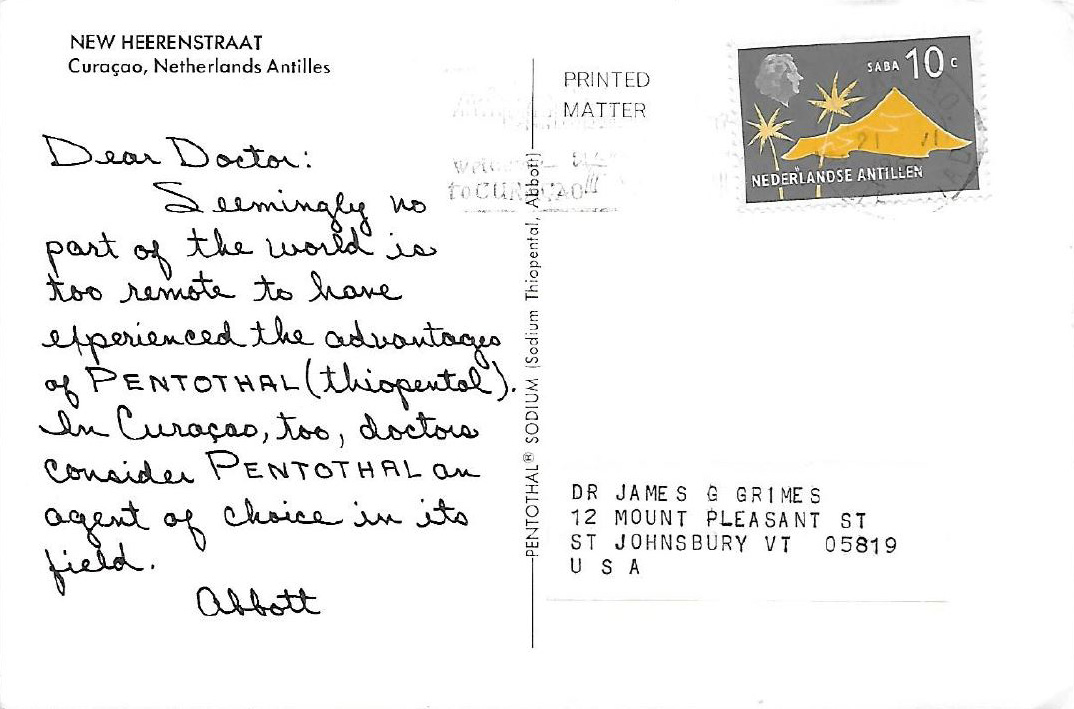 NEW HEERENSTRAAT
Curaçao, Netherlands Antilles
Dear Doctor:
Seemingly no
part of the world is
too remote to have
experienced the advantages
of PENTOTHAL (thiopental).
In Curaçao, too, doctors
consider PENTOTHAL an
agent of choice in its
field.
Abbott
PENTOTHAL® SODIUM (Sodium Thiopental, Abbott)
PRINTED
MATTER
to CURAÇAO
SABA 10 C
NEDERLANDSE ANTILLEN
DR JAMES G GRIMES
12 MOUNT PLEASANT ST
ST JOHNSBURY VT 05819
U S A